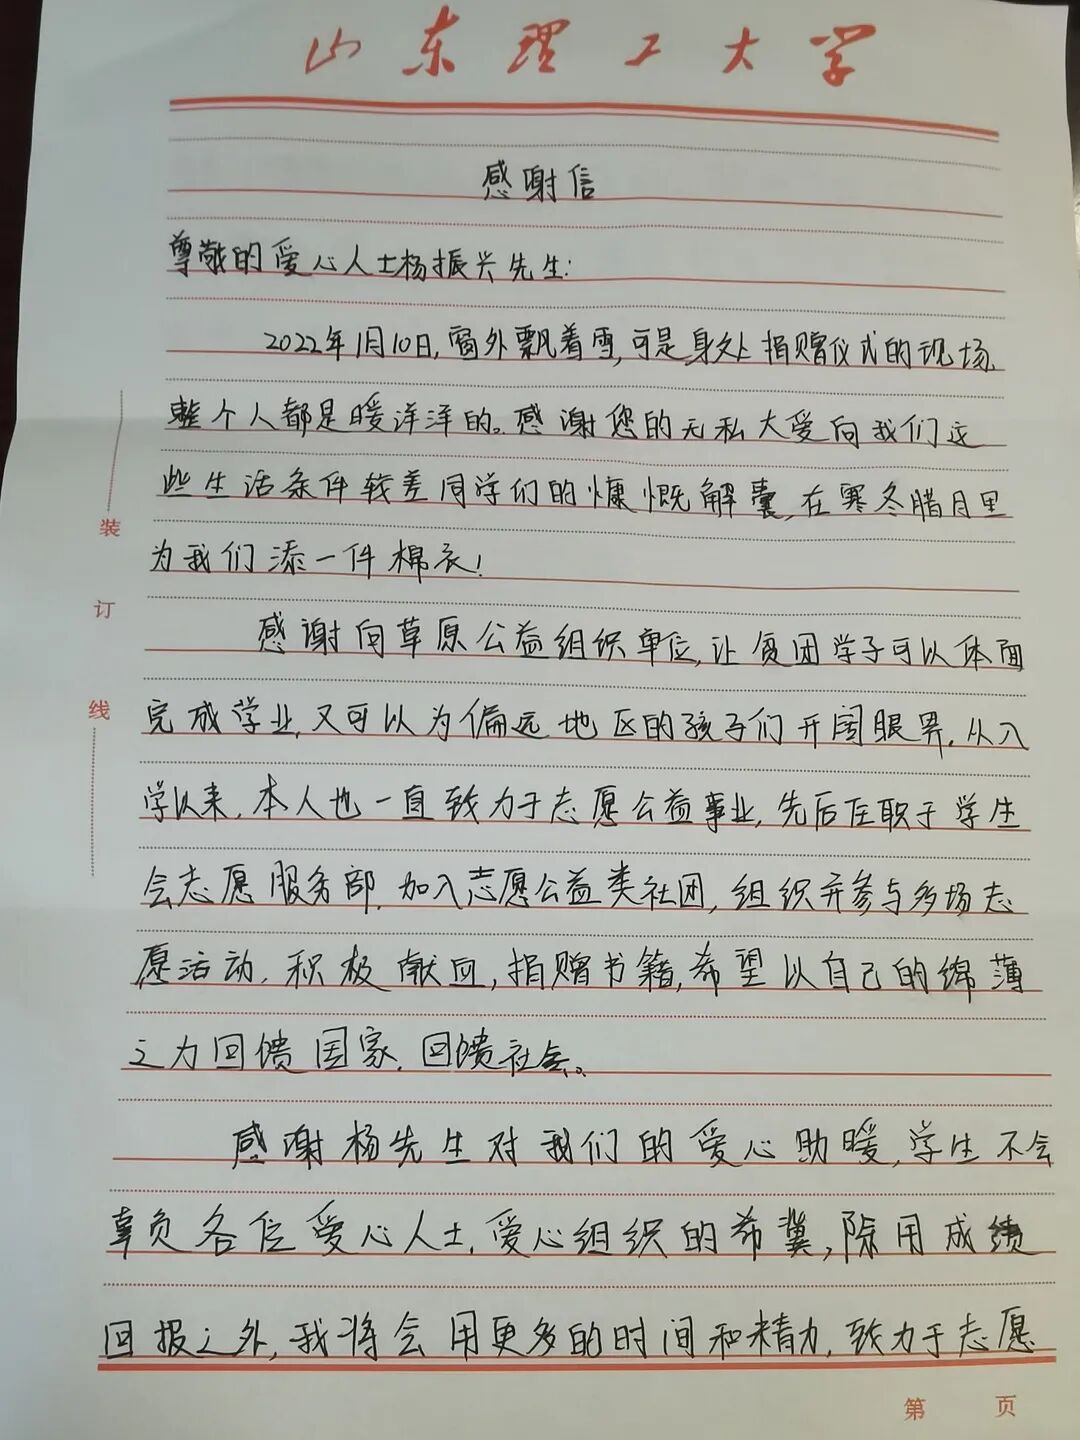 山东理工大学
感谢信
尊敬的爱心人士杨振兴先生:
2022年1月10日,窗外飘着雪,可是身处捐赠仪式的现场,
整个人都是暖洋洋的。感谢您的无私大爱向我们这
些生活条件较差同学们的慷慨解囊,在寒冬腊月里
为我们添一件棉衣!
感谢向草原公益组织单位,让贫困学子可以体面
完成学业,又可以为偏远地区的孩子们开阔眼界,从入
学以来,本人也一直致力于志愿公益事业,先后任职于学生
会志愿服务部,加入志愿公益类社团,组织并参与多场志
愿活动,积极献血,捐赠书籍,希望以自己的绵薄
之力回馈国家,回馈社会。
感谢杨先生对我们的爱心助暖,学生不会
辜负各位爱心人士,爱心组织的希冀,除用成绩
回报之外,我将会用更多的时间和精力,致力于志愿
装
订
线
第 页